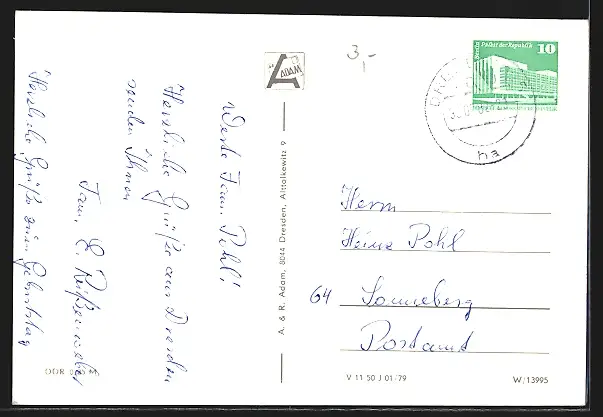 Werte Fam. Pohl!
Herzliche Grüße aus Dresden
senden Ihnen
Fam. E.
Herzliche Grüße zum Geburtstag
3,-
ADAM
A. & R. Adam, 8044 Dresden, Alttolkewitz 9
Palast der Republik
10
Berlin
ha
Herrn
Heinz Pohl
64 Sonneberg
Postamt
V 11 50 J 01/79
W/13995